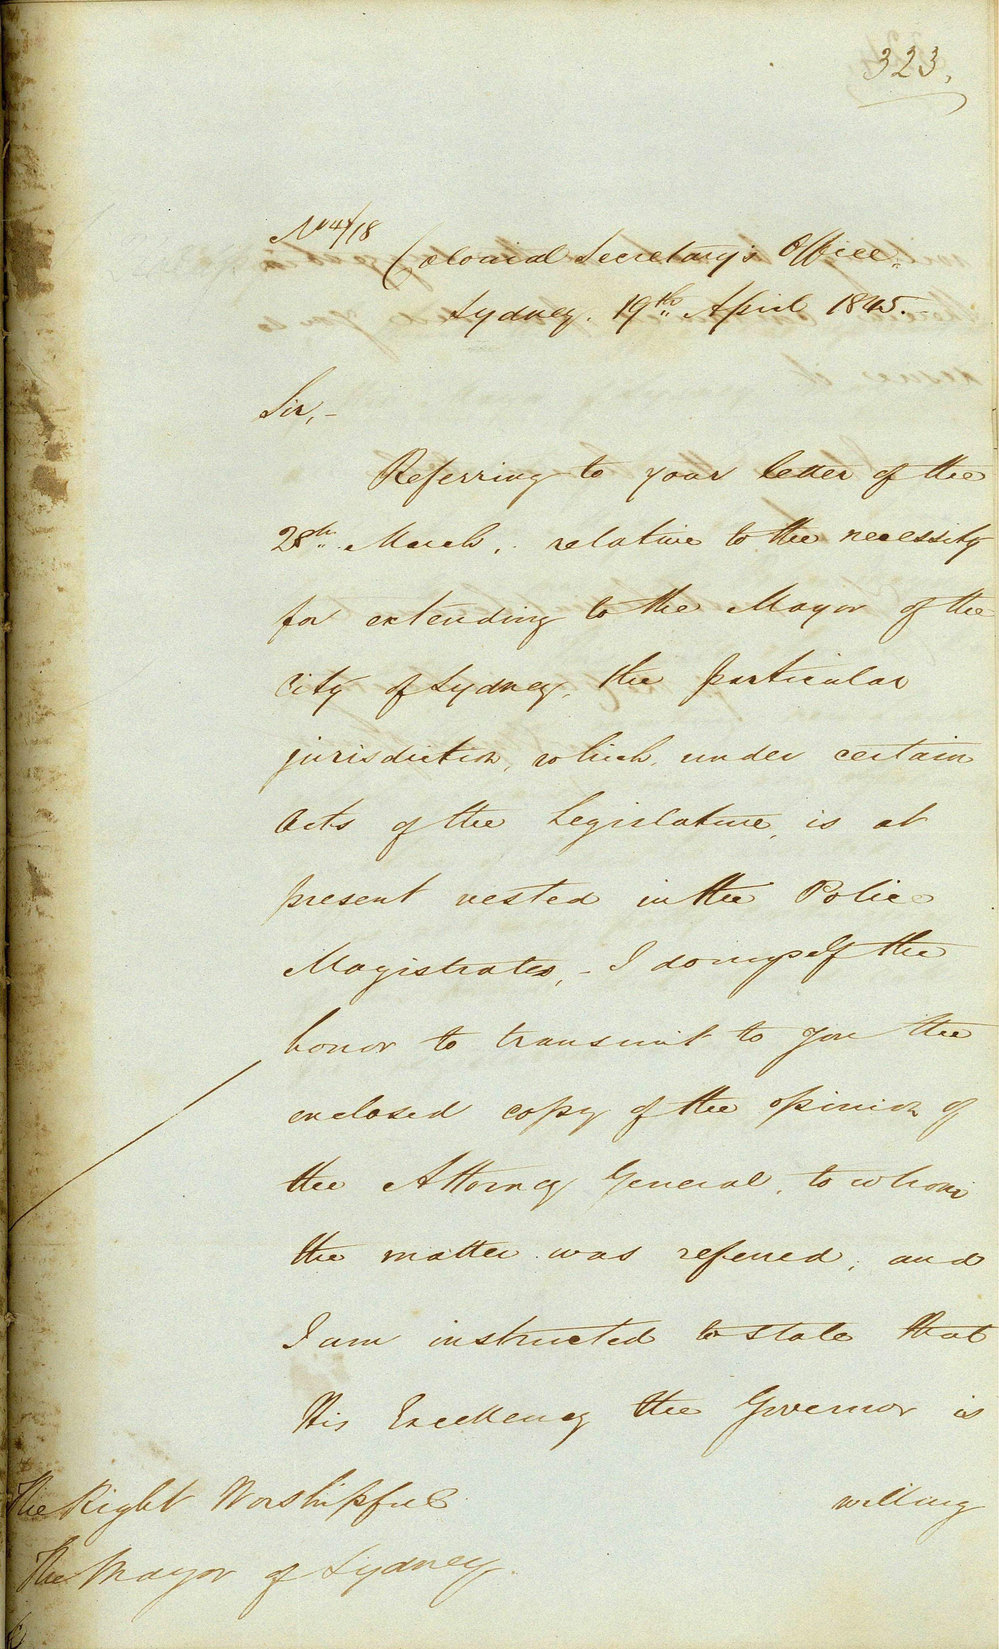 323.
No 45/18
Colonial Secretary's Office
Sydney. 19th April 1845.
Sir,-
Referring to your letter of the
28th March, relative to the necessity
for extending to the Mayor of the
City of Sydney, the particular
jurisdiction, which, under certain
Acts of the Legislature, is at
present vested in the Police
Magistrates, - I do myself the
honor to transmit to you the
enclosed copy of the opinion of
the Attorney General, to whom
the matter was referred, and
I am instructed to state that
His Excellency the Governor is
willing
The Right Worshipful
The Mayor of Sydney.